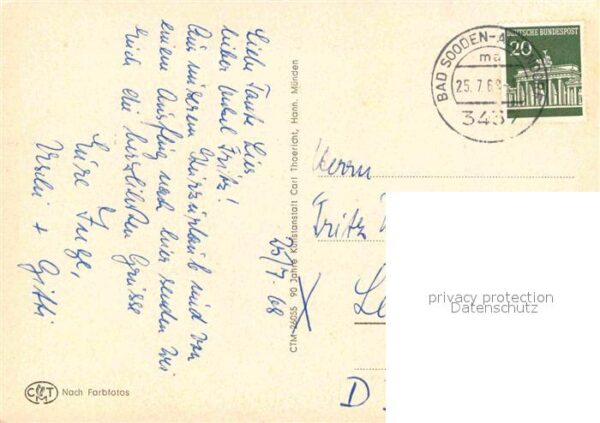 Liebe Tante Lies
lieber Onkel Fritz!
Aus unserem Kurzurlaub und von
einem Ausflug nach hier senden wir
Euch die herzlichsten Grüsse
Eure Inge,
+ Gitti
25/7.68
CTM 26055 90 Jahre Kunstanstalt Carl Thoericht, Hann. Münden
CTM
Nach Farbfotos
BAD SOODEN-A
25.7.68
ma
3437
DEUTSCHE BUNDESPOST
20
Herrn
Fritz
D
privacy protection
Datenschutz